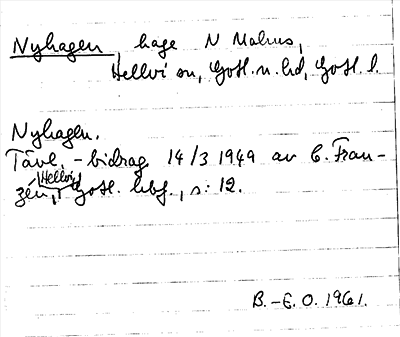 Nyhagen, hage N Malms,
Hellvi sn, Gotl. n. hd, Gotl. l.
Nyhagen.
Tävl.-bidrag 14/3 1949 av C. Fran-
zén, Hellvi, Gotl. hbf., s: 12.
B.-E. O. 1961.